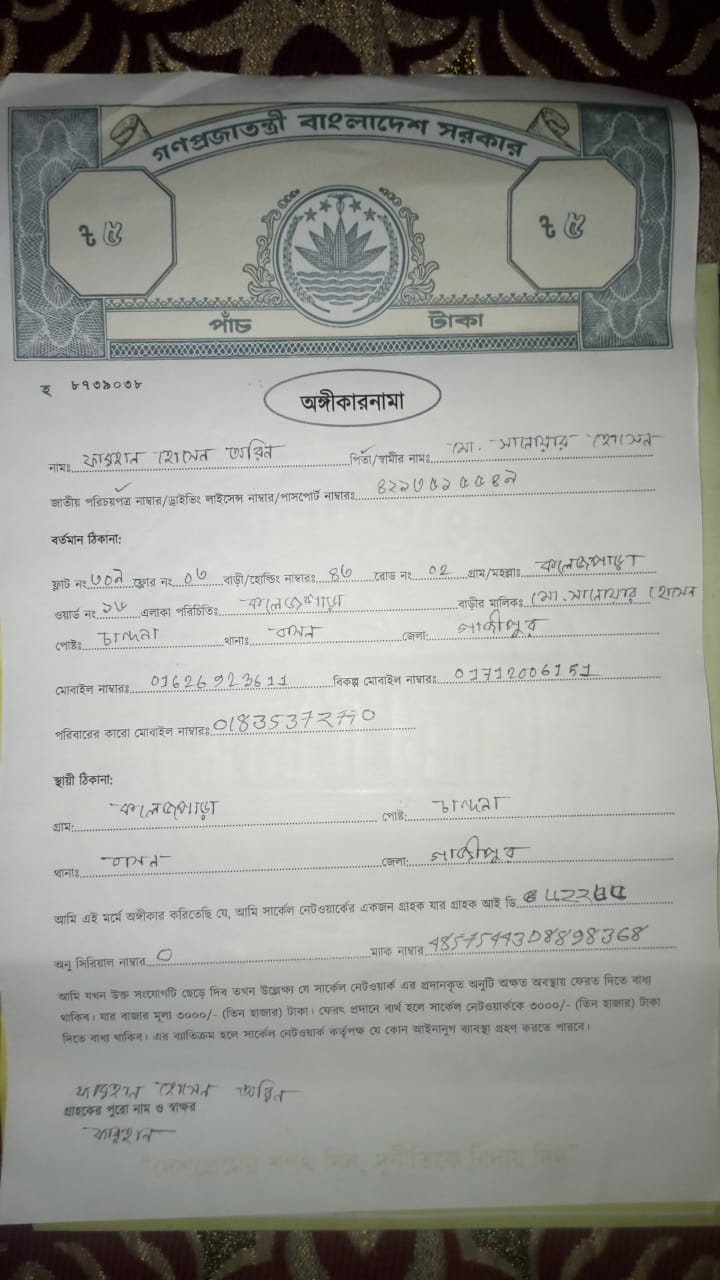 গণপ্রজাতন্ত্রী বাংলাদেশ সরকার
৳ ৫ ৳ ৫
পাঁচ টাকা
হ ৮৭৩৯০৩৮
অঙ্গীকারনামা
নামঃ ফারহান হোসেন অরিন পিতা/স্বামীর নামঃ মো. সানোয়ার হোসেন
জাতীয় পরিচয়পত্র নাম্বার/ড্রাইভিং লাইসেন্স নাম্বার/পাসপোর্ট নাম্বারঃ
বর্তমান ঠিকানা:
ফ্লাট নং ফ্লোর নং ০৬ বাড়ী/হোল্ডিং নাম্বারঃ ৪৬ রোড নং ০২ গ্রাম/মহল্লাঃ কলেজপাড়া
ওয়ার্ড নং এলাকা পরিচিতিঃ কলেজপাড়া বাড়ীর মালিকঃ মো. সানোয়ার হোসেন
পোষ্টঃ চান্দনা থানাঃ বাসন জেলা: গাজীপুর
মোবাইল নাম্বারঃ 01626923611 বিকল্প মোবাইল নাম্বারঃ 01712006151
পরিবারের কারো মোবাইল নাম্বারঃ 01835372770
স্থায়ী ঠিকানা:
গ্রাম: কলেজপাড়া পোষ্ট: চান্দনা
থানাঃ বাসন জেলা: গাজীপুর
আমি এই মর্মে অঙ্গীকার করিতেছি যে, আমি সার্কেল নেটওয়ার্কের একজন গ্রাহক যার গ্রাহক আই ডি
অনু সিরিয়াল নাম্বার 0 ম্যাক নাম্বার 48575443D8898368
আমি যখন উক্ত সংযোগটি ছেড়ে দিব তখন উল্লেক্ষ্য যে সার্কেল নেটওয়ার্ক এর প্রদানকৃত অনুটি অক্ষত অবস্থায় ফেরত দিতে বাধ্য
থাকিব। যার বাজার মূল্য ৩০০০/- (তিন হাজার) টাকা। ফেরৎ প্রদানে ব্যর্থ হলে সার্কেল নেটওয়ার্ককে ৩০০০/- (তিন হাজার) টাকা
দিতে বাধ্য থাকিব। এর ব্যতিক্রম হলে সার্কেল নেটওয়ার্ক কর্তৃপক্ষ যে কোন আইনানুগ ব্যবস্থা গ্রহণ করতে পারবে।
ফারহান হোসেন অরিন
গ্রাহকের পুরো নাম ও স্বাক্ষর
ফারহান
"দেশপ্রেমের শপথ নিন, দুর্নীতিকে বিদায় দিন"